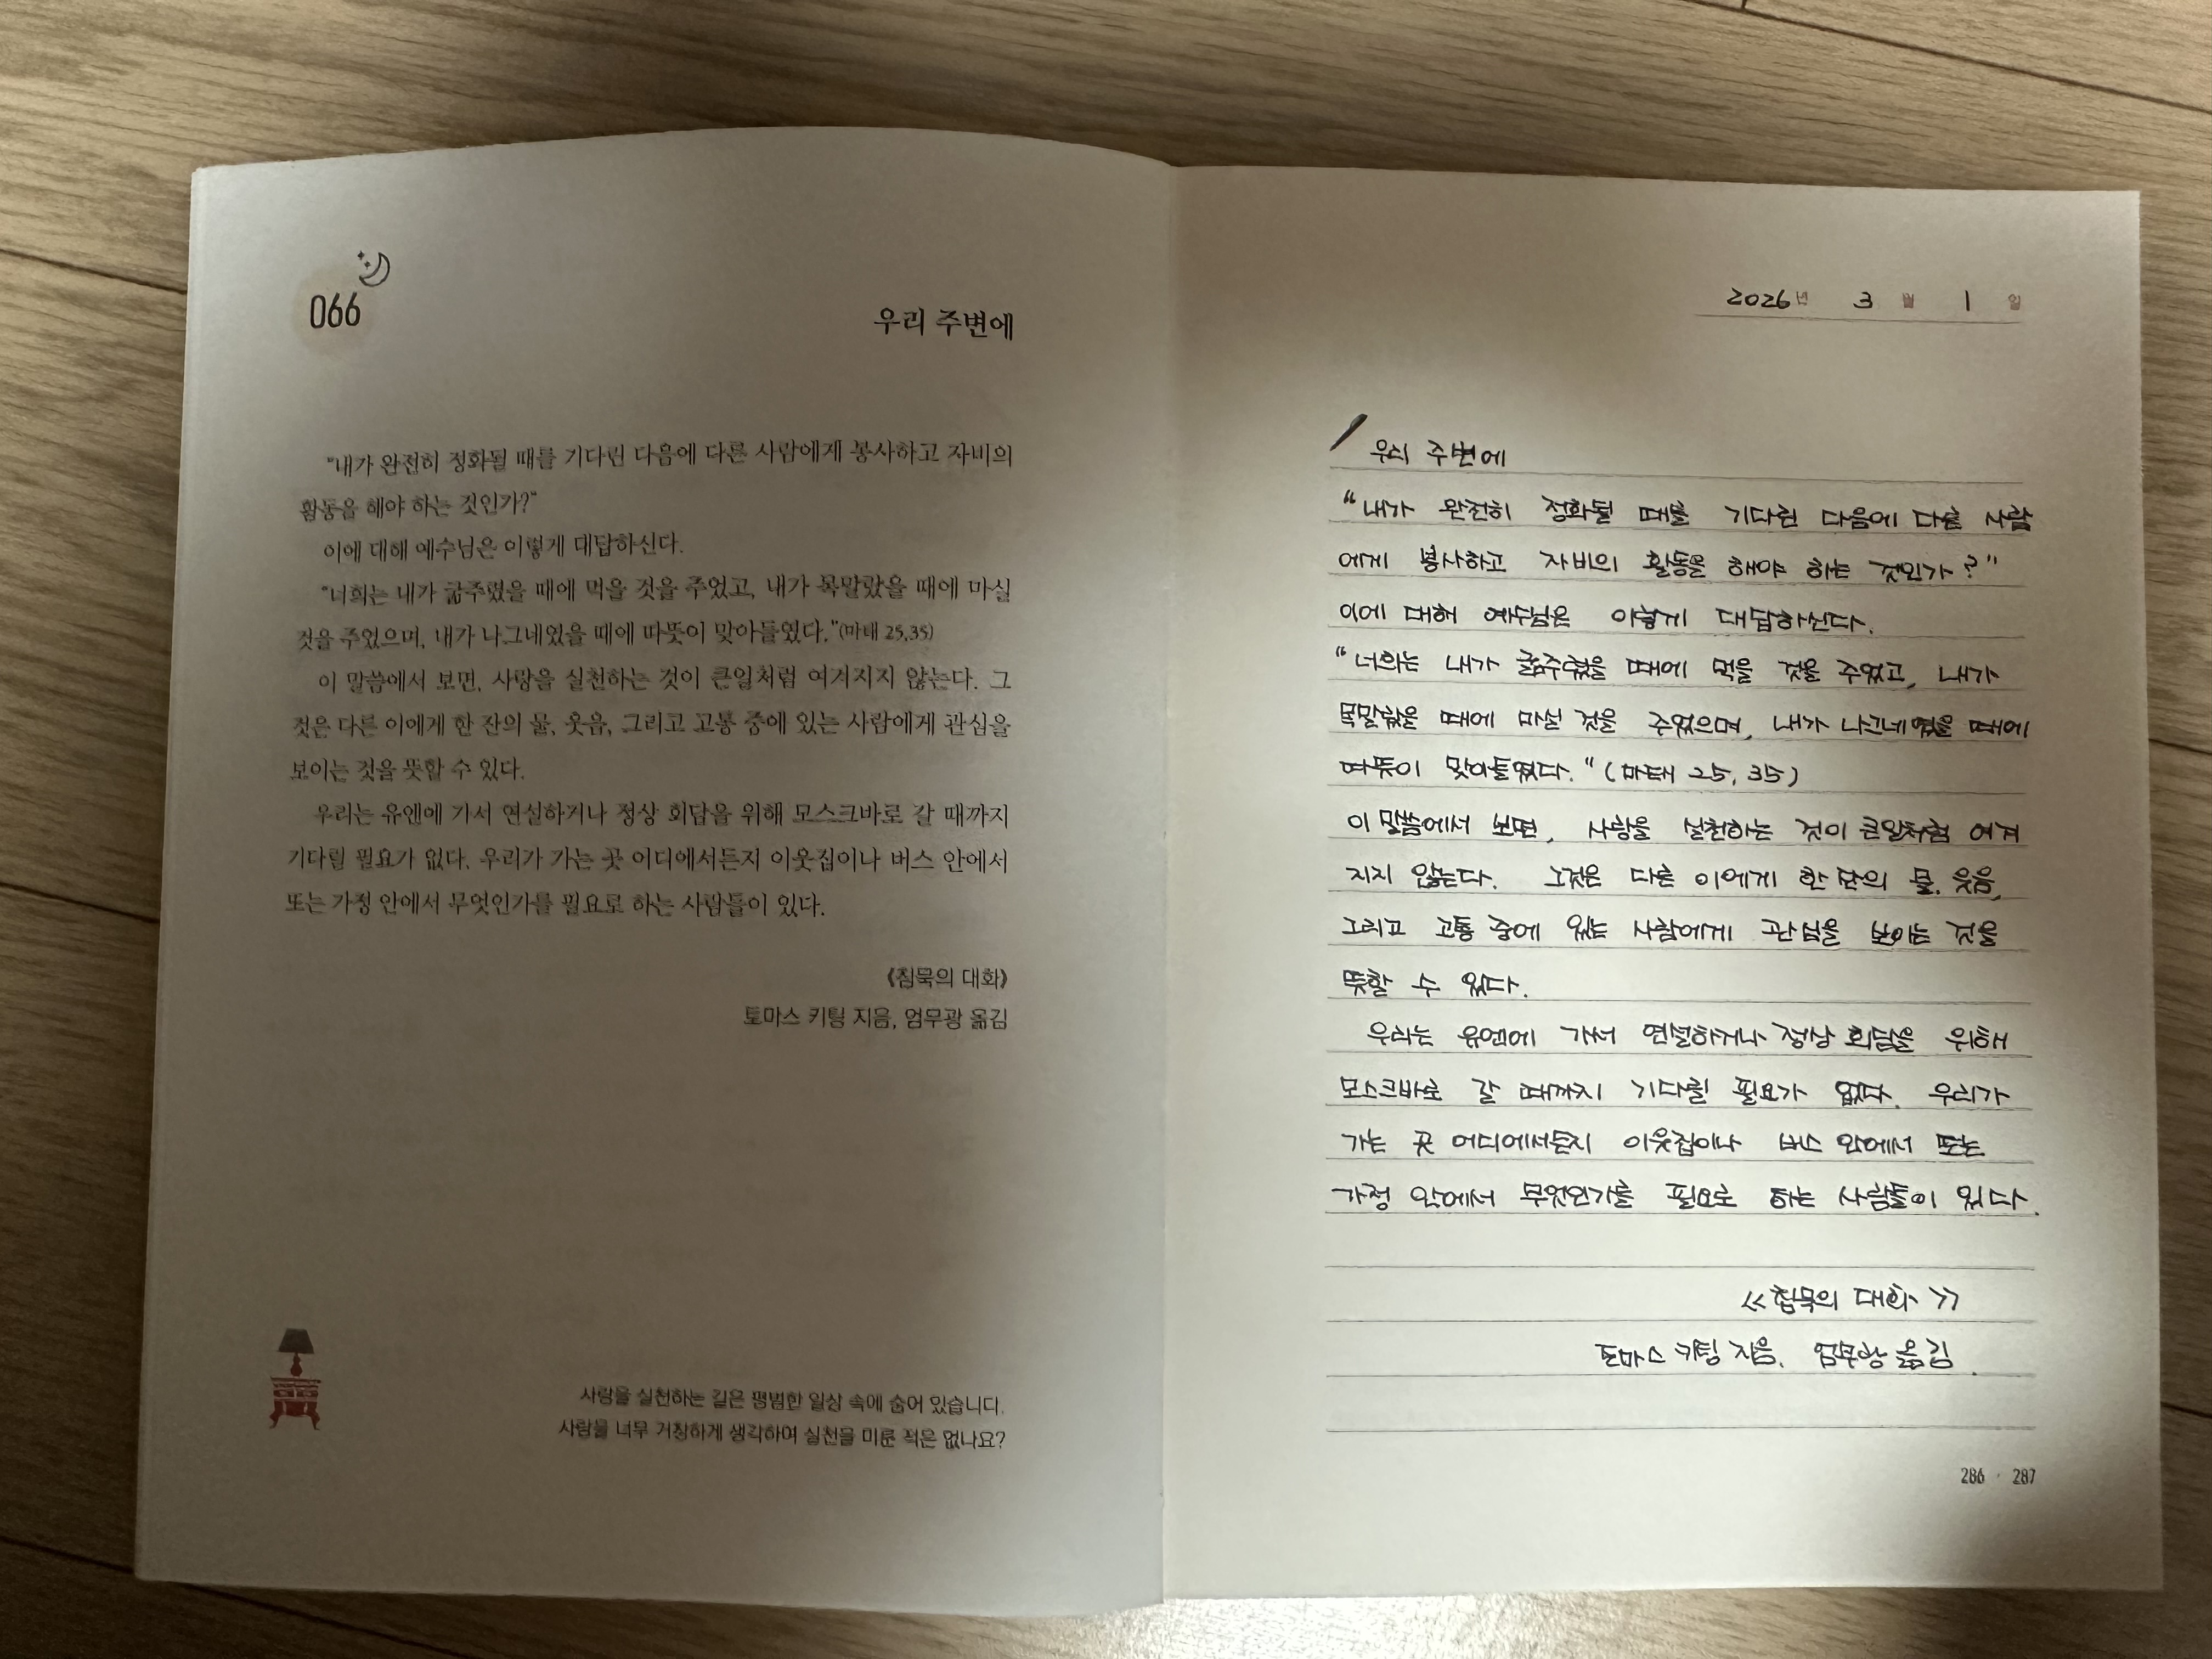 066
우리 주변에
"내가 완전히 정화될 때를 기다린 다음에 다른 사람에게 봉사하고 자비의
활동을 해야 하는 것인가?"
이에 대해 예수님은 이렇게 대답하신다.
"너희는 내가 굶주렸을 때에 먹을 것을 주었고, 내가 목말랐을 때에 마실
것을 주었으며, 내가 나그네였을 때에 따뜻이 맞아들였다."(마태 25,35)
이 말씀에서 보면, 사랑을 실천하는 것이 큰일처럼 여겨지지 않는다. 그
것은 다른 이에게 한 잔의 물, 웃음, 그리고 고통 중에 있는 사람에게 관심을
보이는 것을 뜻할 수 있다.
우리는 유엔에 가서 연설하거나 정상 회담을 위해 모스크바로 갈 때까지
기다릴 필요가 없다. 우리가 가는 곳 어디에서든지 이웃집이나 버스 안에서
또는 가정 안에서 무엇인가를 필요로 하는 사람들이 있다.
《침묵의 대화》
토마스 키팅 지음, 엄무광 옮김
사랑을 실천하는 길은 평범한 일상 속에 숨어 있습니다.
사랑을 너무 거창하게 생각하여 실천을 미룬 적은 없나요?
2026년 3월 1일
우리 주변에
"내가 완전히 정화될 때를 기다린 다음에 다른 사람
에게 봉사하고 자비의 활동을 해야 하는 것인가?"
이에 대해 예수님은 이렇게 대답하신다.
"너희는 내가 굶주렸을 때에 먹을 것을 주었고, 내가
목말랐을 때에 마실 것을 주었으며, 내가 나그네였을 때에
따뜻이 맞아들였다." (마태 25, 35)
이 말씀에서 보면, 사랑을 실천하는 것이 큰일처럼 여겨
지지 않는다. 그것은 다른 이에게 한 잔의 물, 웃음,
그리고 고통 중에 있는 사람에게 관심을 보이는 것을
뜻할 수 있다.
우리는 유엔에 가서 연설하거나 정상 회담을 위해
모스크바로 갈 때까지 기다릴 필요가 없다. 우리가
가는 곳 어디에서든지 이웃집이나 버스 안에서 또는
가정 안에서 무엇인가를 필요로 하는 사람들이 있다.
《침묵의 대화》
토마스 키팅 지음, 엄무광 옮김.
286 · 287